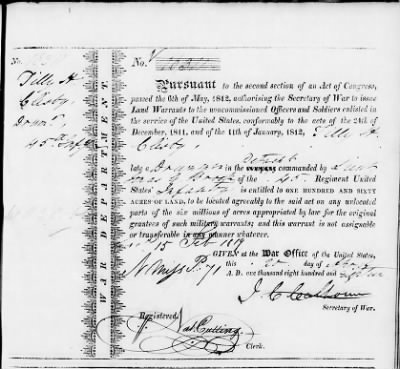 No.
Tilly H
Clisby
45th
No.
Pursuant to the second section of an Act of Congress,
passed the 6th of May, 1812, authorising the Secretary of War to issue
Land Warrants to the noncommissioned Officers and Soldiers enlisted in
the service of the United States, conformably to the acts of the 24th of
December, 1811, and of the 11th of January, 1812, Tilly H.
Clisby,
late in the company commanded by
of the 45 Regiment United
States' Infantry is entitled to ONE HUNDRED AND SIXTY
ACRES OF LAND, to be located agreeably to the said act on any unlocated
parts of the six millions of acres appropriated by law for the original
grantees of such military warrants; and this warrant is not assignable
or transferable in any manner whatever.
15 Feb 1819
GIVEN at the War Office of the United States,
this day of
A. D. one thousand eight hundred and
J C Calhoun
Secretary of War.
Registered,
Nat Cutting
Clerk.
WAR DEPARTMENT.